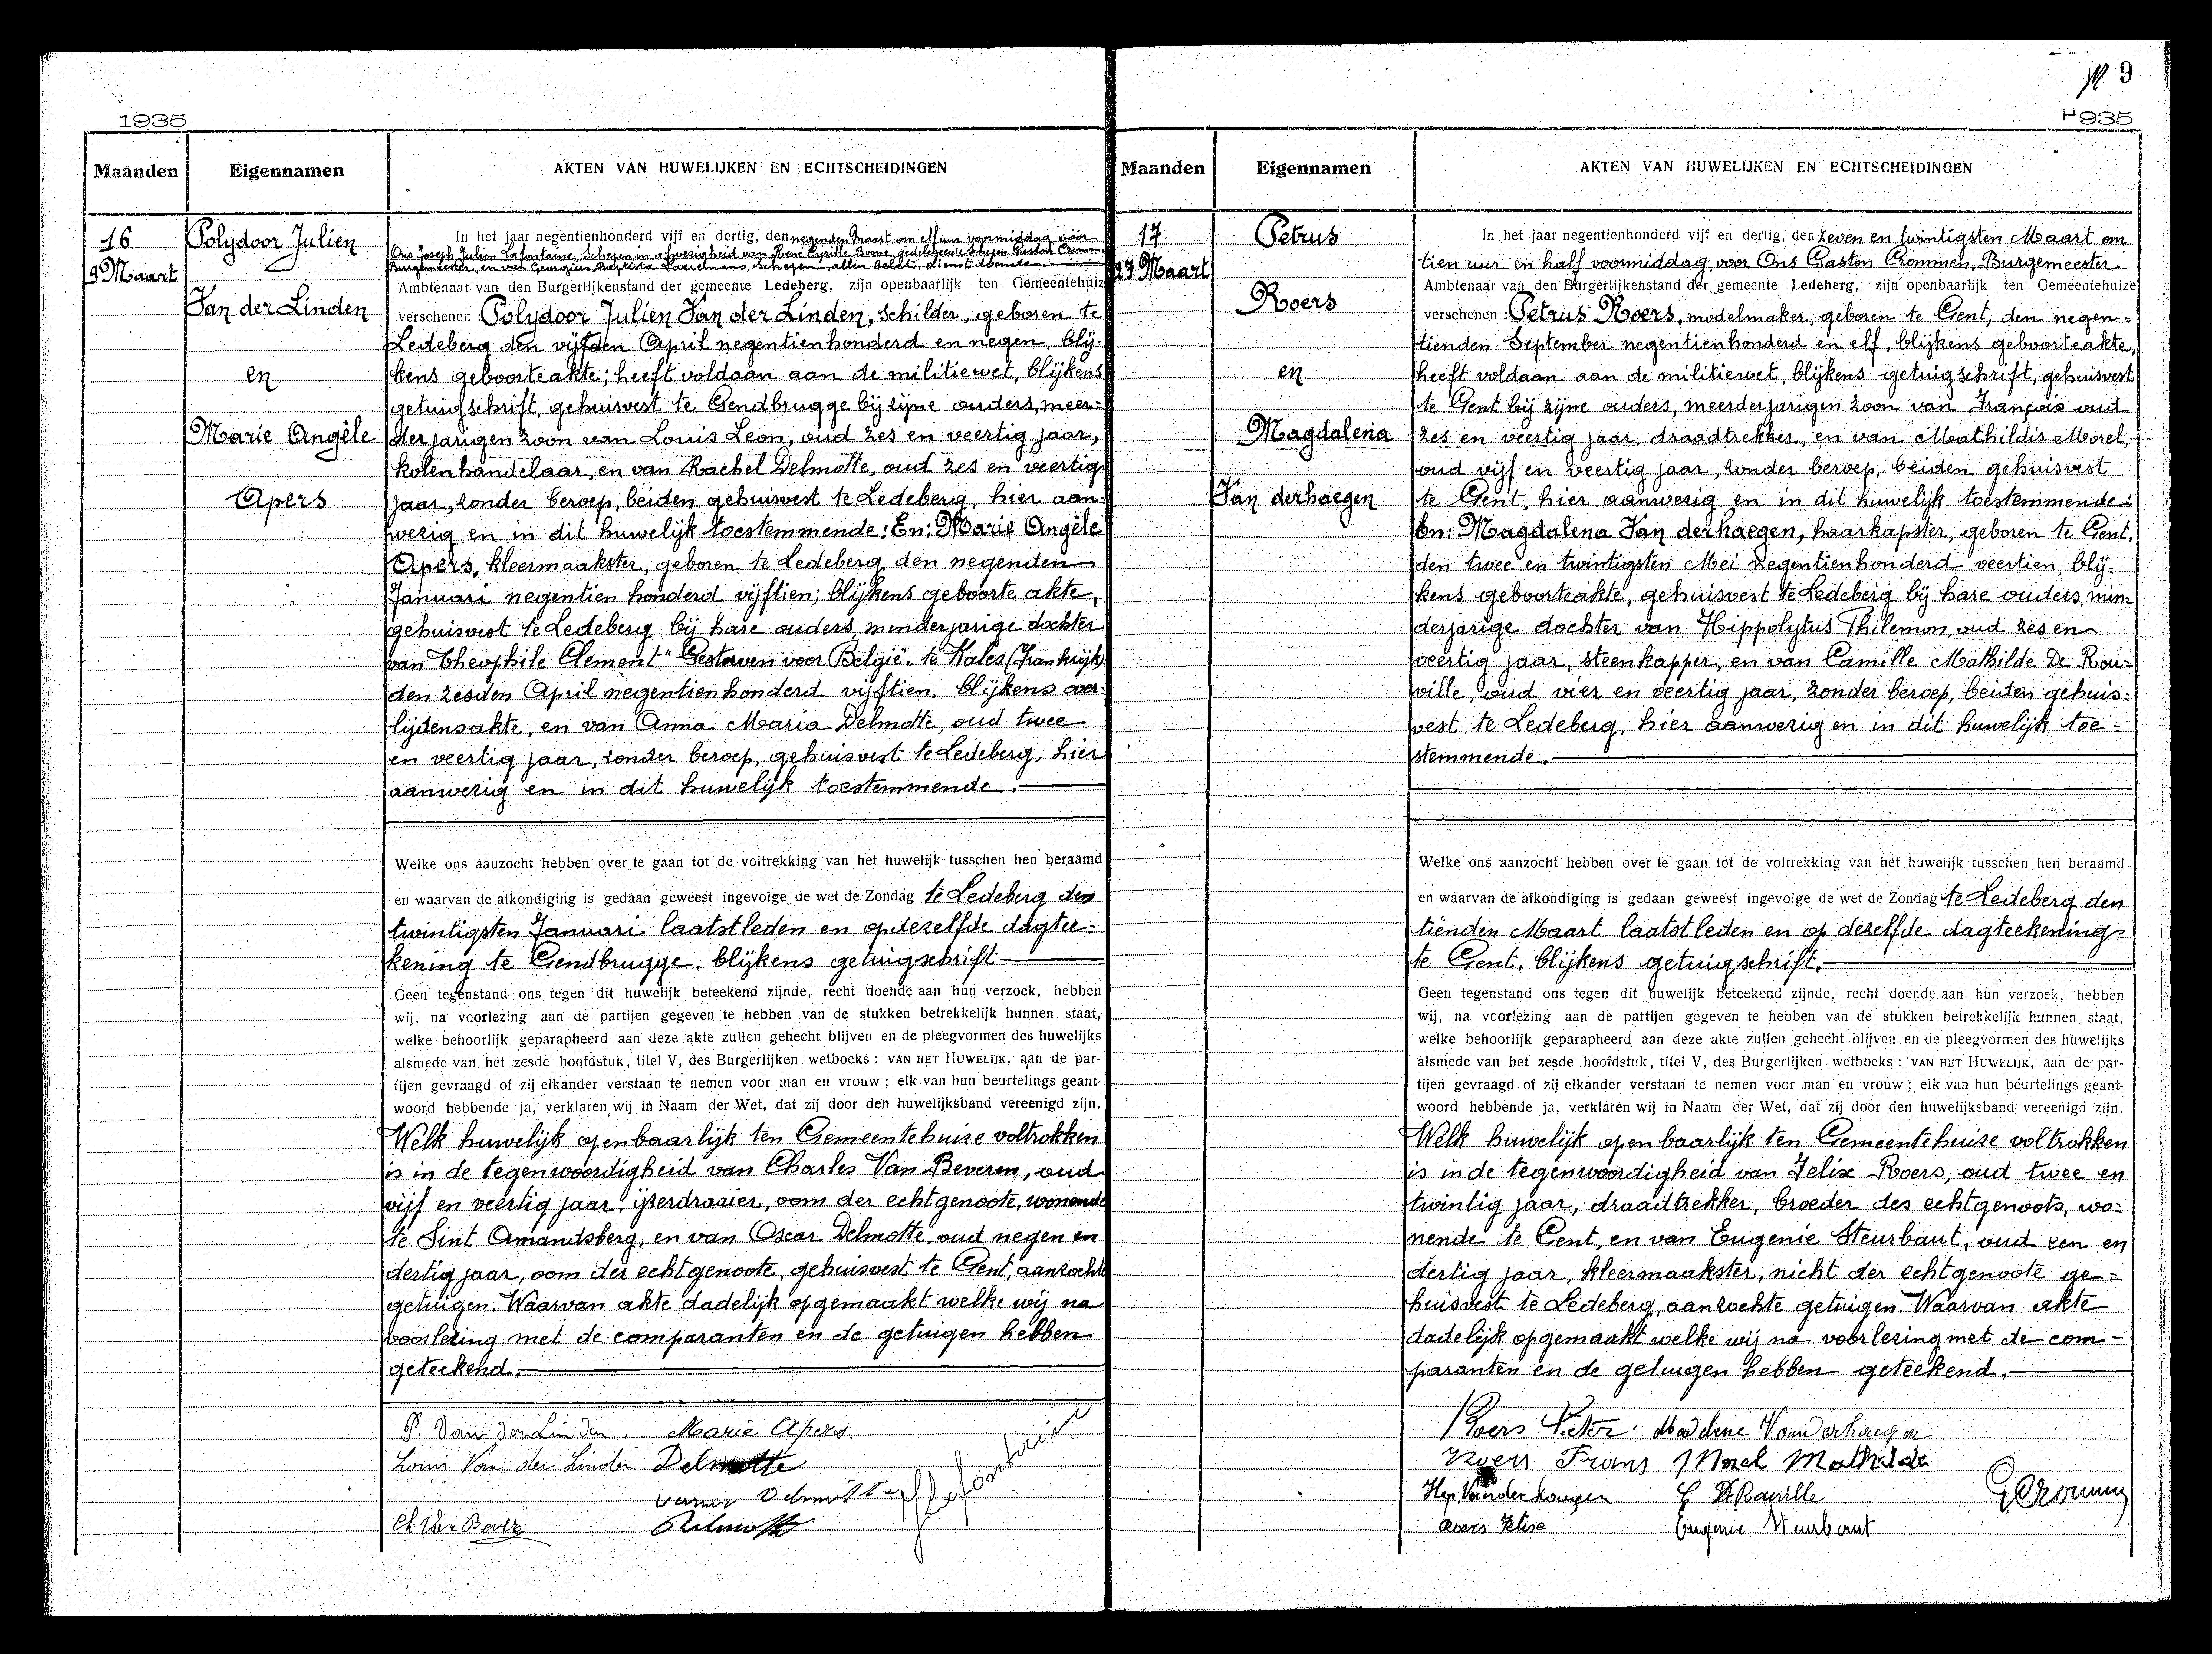 1935
Maanden
Eigennamen
AKTEN VAN HUWELIJKEN EN ECHTSCHEIDINGEN
16
9 Maart
Polydoor Julien
Van der Linden
en
Marie Angèle
Apers
In het jaar negentienhonderd vijf en dertig, den negenden Maart om elf uur voormiddag voor
Ons Joseph Julien Lafontaine, Schepen in afwezigheid van René Cyrille Boone, gedelegeerde Schepen Gaston Crommen
Burgemeester, en van Georgius Baptista Laaremans, schepen, allen belet, dienstdoenden.
Ambtenaar van den Burgerlijkenstand der gemeente Ledeberg, zijn openbaarlijk ten Gemeentehuize
verschenen : Polydoor Julien Van der Linden, schilder, geboren te
Ledeberg den vijfden April negentienhonderd en negen, blij-
kens geboorteakte; heeft voldaan aan de militiewet, blijkens
getuigschrift, gehuisvest te Gendbrugge bij zijne ouders, meer=
derjarigen zoon van Louis Leon, oud zes en veertig jaar,
kolenhandelaar, en van Rachel Delmotte, oud zes en veertig
jaar, zonder beroep, beiden gehuisvest te Ledeberg, hier aan-
wezig en in dit huwelijk toestemmende : En: Marie Angèle
Apers, kleermaakster, geboren te Ledeberg den negenden
Januari negentien honderd vijftien; blijkens geboorte akte,
gehuisvest te Ledeberg bij hare ouders, minderjarige dochter
van Theophile Clement "Gestorven voor België" te Kales (Frankrijk)
den zesden April negentienhonderd vijftien, blijkens over-
lijdensakte, en van Anna Maria Delmotte, oud twee
en veertig jaar, zonder beroep, gehuisvest te Ledeberg, hier
aanwezig en in dit huwelijk toestemmende.
Welke ons aanzocht hebben over te gaan tot de voltrekking van het huwelijk tusschen hen beraamd
en waarvan de afkondiging is gedaan geweest ingevolge de wet de Zondag te Ledeberg den
twintigsten Januari laatstleden en op dezelfde dagtee=
kening te Gendbrugge, blijkens getuigschrift
Geen tegenstand ons tegen dit huwelijk beteekend zijnde, recht doende aan hun verzoek, hebben
wij, na voorlezing aan de partijen gegeven te hebben van de stukken betrekkelijk hunnen staat,
welke behoorlijk geparapheerd aan deze akte zullen gehecht blijven en de pleegvormen des huwelijks
alsmede van het zesde hoofdstuk, titel V, des Burgerlijken wetboeks : VAN HET HUWELIJK, aan de par-
tijen gevraagd of zij elkander verstaan te nemen voor man en vrouw ; elk van hun beurtelings geant-
woord hebbende ja, verklaren wij in Naam der Wet, dat zij door den huwelijksband vereenigd zijn.
Welk huwelijk openbaarlijk ten Gemeentehuize voltrokken
is in de tegenwoordigheid van Charles Van Beveren, oud
vijf en veertig jaar, ijzerdraaier, oom der echtgenoote, wonende
te Sint Amandsberg, en van Oscar Delmotte, oud negen en
dertig jaar, oom der echtgenoote, gehuisvest te Gent, aanzochte
getuigen. Waarvan akte dadelijk opgemaakt welke wij na
voorlezing met de comparanten en de getuigen hebben
geteekend.
P. Van der Linden Marie Apers
Louis Van der Linden Delmotte
Delmotte Lafontaine
Ch Van Bever Delmotte
9
1935
Maanden
Eigennamen
AKTEN VAN HUWELIJKEN EN ECHTSCHEIDINGEN
17
27 Maart
Petrus
Roers
en
Magdalena
Van derhaegen
In het jaar negentienhonderd vijf en dertig, den zeven en twintigsten Maart om
tien uur en half voormiddag voor Ons Gaston Crommen, Burgemeester
Ambtenaar van den Burgerlijkenstand der gemeente Ledeberg, zijn openbaarlijk ten Gemeentehuize
verschenen : Petrus Roers, modelmaker, geboren te Gent, den negen=
tienden September negentienhonderd en elf, blijkens geboorteakte,
heeft voldaan aan de militiewet, blijkens getuigschrift, gehuisvest
te Gent bij zijne ouders, meerderjarigen zoon van François oud
zes en veertig jaar, draadtrekker, en van Mathildis Morel,
oud vijf en veertig jaar, zonder beroep, beiden gehuisvest
te Gent, hier aanwezig en in dit huwelijk toestemmende:
En: Magdalena Van derhaegen, haarkapster, geboren te Gent,
den twee en twintigsten Mei negentienhonderd veertien, blij-
kens geboorteakte, gehuisvest te Ledeberg bij hare ouders, min=
derjarige dochter van Hippolytus Philemon, oud zes en
veertig jaar, steenkapper, en van Camille Mathilde De Rou=
ville, oud vier en veertig jaar, zonder beroep, beiden gehuis=
vest te Ledeberg, hier aanwezig en in dit huwelijk toe=
stemmende.
Welke ons aanzocht hebben over te gaan tot de voltrekking van het huwelijk tusschen hen beraamd
en waarvan de afkondiging is gedaan geweest ingevolge de wet de Zondag te Ledeberg den
tienden Maart laatstleden en op dezelfde dagteekening
te Gent, blijkens getuigschrift.
Geen tegenstand ons tegen dit huwelijk beteekend zijnde, recht doende aan hun verzoek, hebben
wij, na voorlezing aan de partijen gegeven te hebben van de stukken betrekkelijk hunnen staat,
welke behoorlijk geparapheerd aan deze akte zullen gehecht blijven en de pleegvormen des huwelijks
alsmede van het zesde hoofdstuk, titel V, des Burgerlijken wetboeks : VAN HET HUWELIJK, aan de par-
tijen gevraagd of zij elkander verstaan te nemen voor man en vrouw ; elk van hun beurtelings geant-
woord hebbende ja, verklaren wij in Naam der Wet, dat zij door den huwelijksband vereenigd zijn.
Welk huwelijk openbaarlijk ten Gemeentehuize voltrokken
is in de tegenwoordigheid van Felix Roers, oud twee en
twintig jaar, draadtrekker, broeder des echtgenoots, wo=
nende te Gent, en van Eugenie Steurbaut, oud een en
dertig jaar, kleermaakster, nicht der echtgenoote ge=
huisvest te Ledeberg, aanzochte getuigen. Waarvan akte
dadelijk opgemaakt welke wij na voorlezing met de com-
paranten en de getuigen hebben geteekend.
Roers Madeleine Vanderhaegen
Roers Frans Morel Mathilde
Hip. Vanderhaegen C De Rouville GCrommen
Roers Felix Eugenie Steurbaut